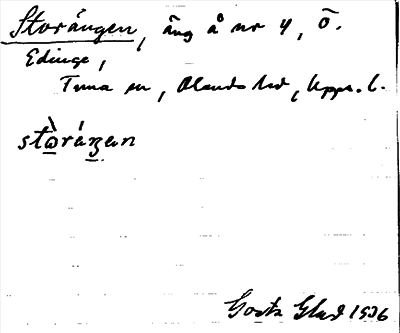 Storängen, äng å nr 4, Ö.
Edinge,
Tuna sn, Olands hd, Upps. l.
stò̱ráŋan
Gösta Glad 1936